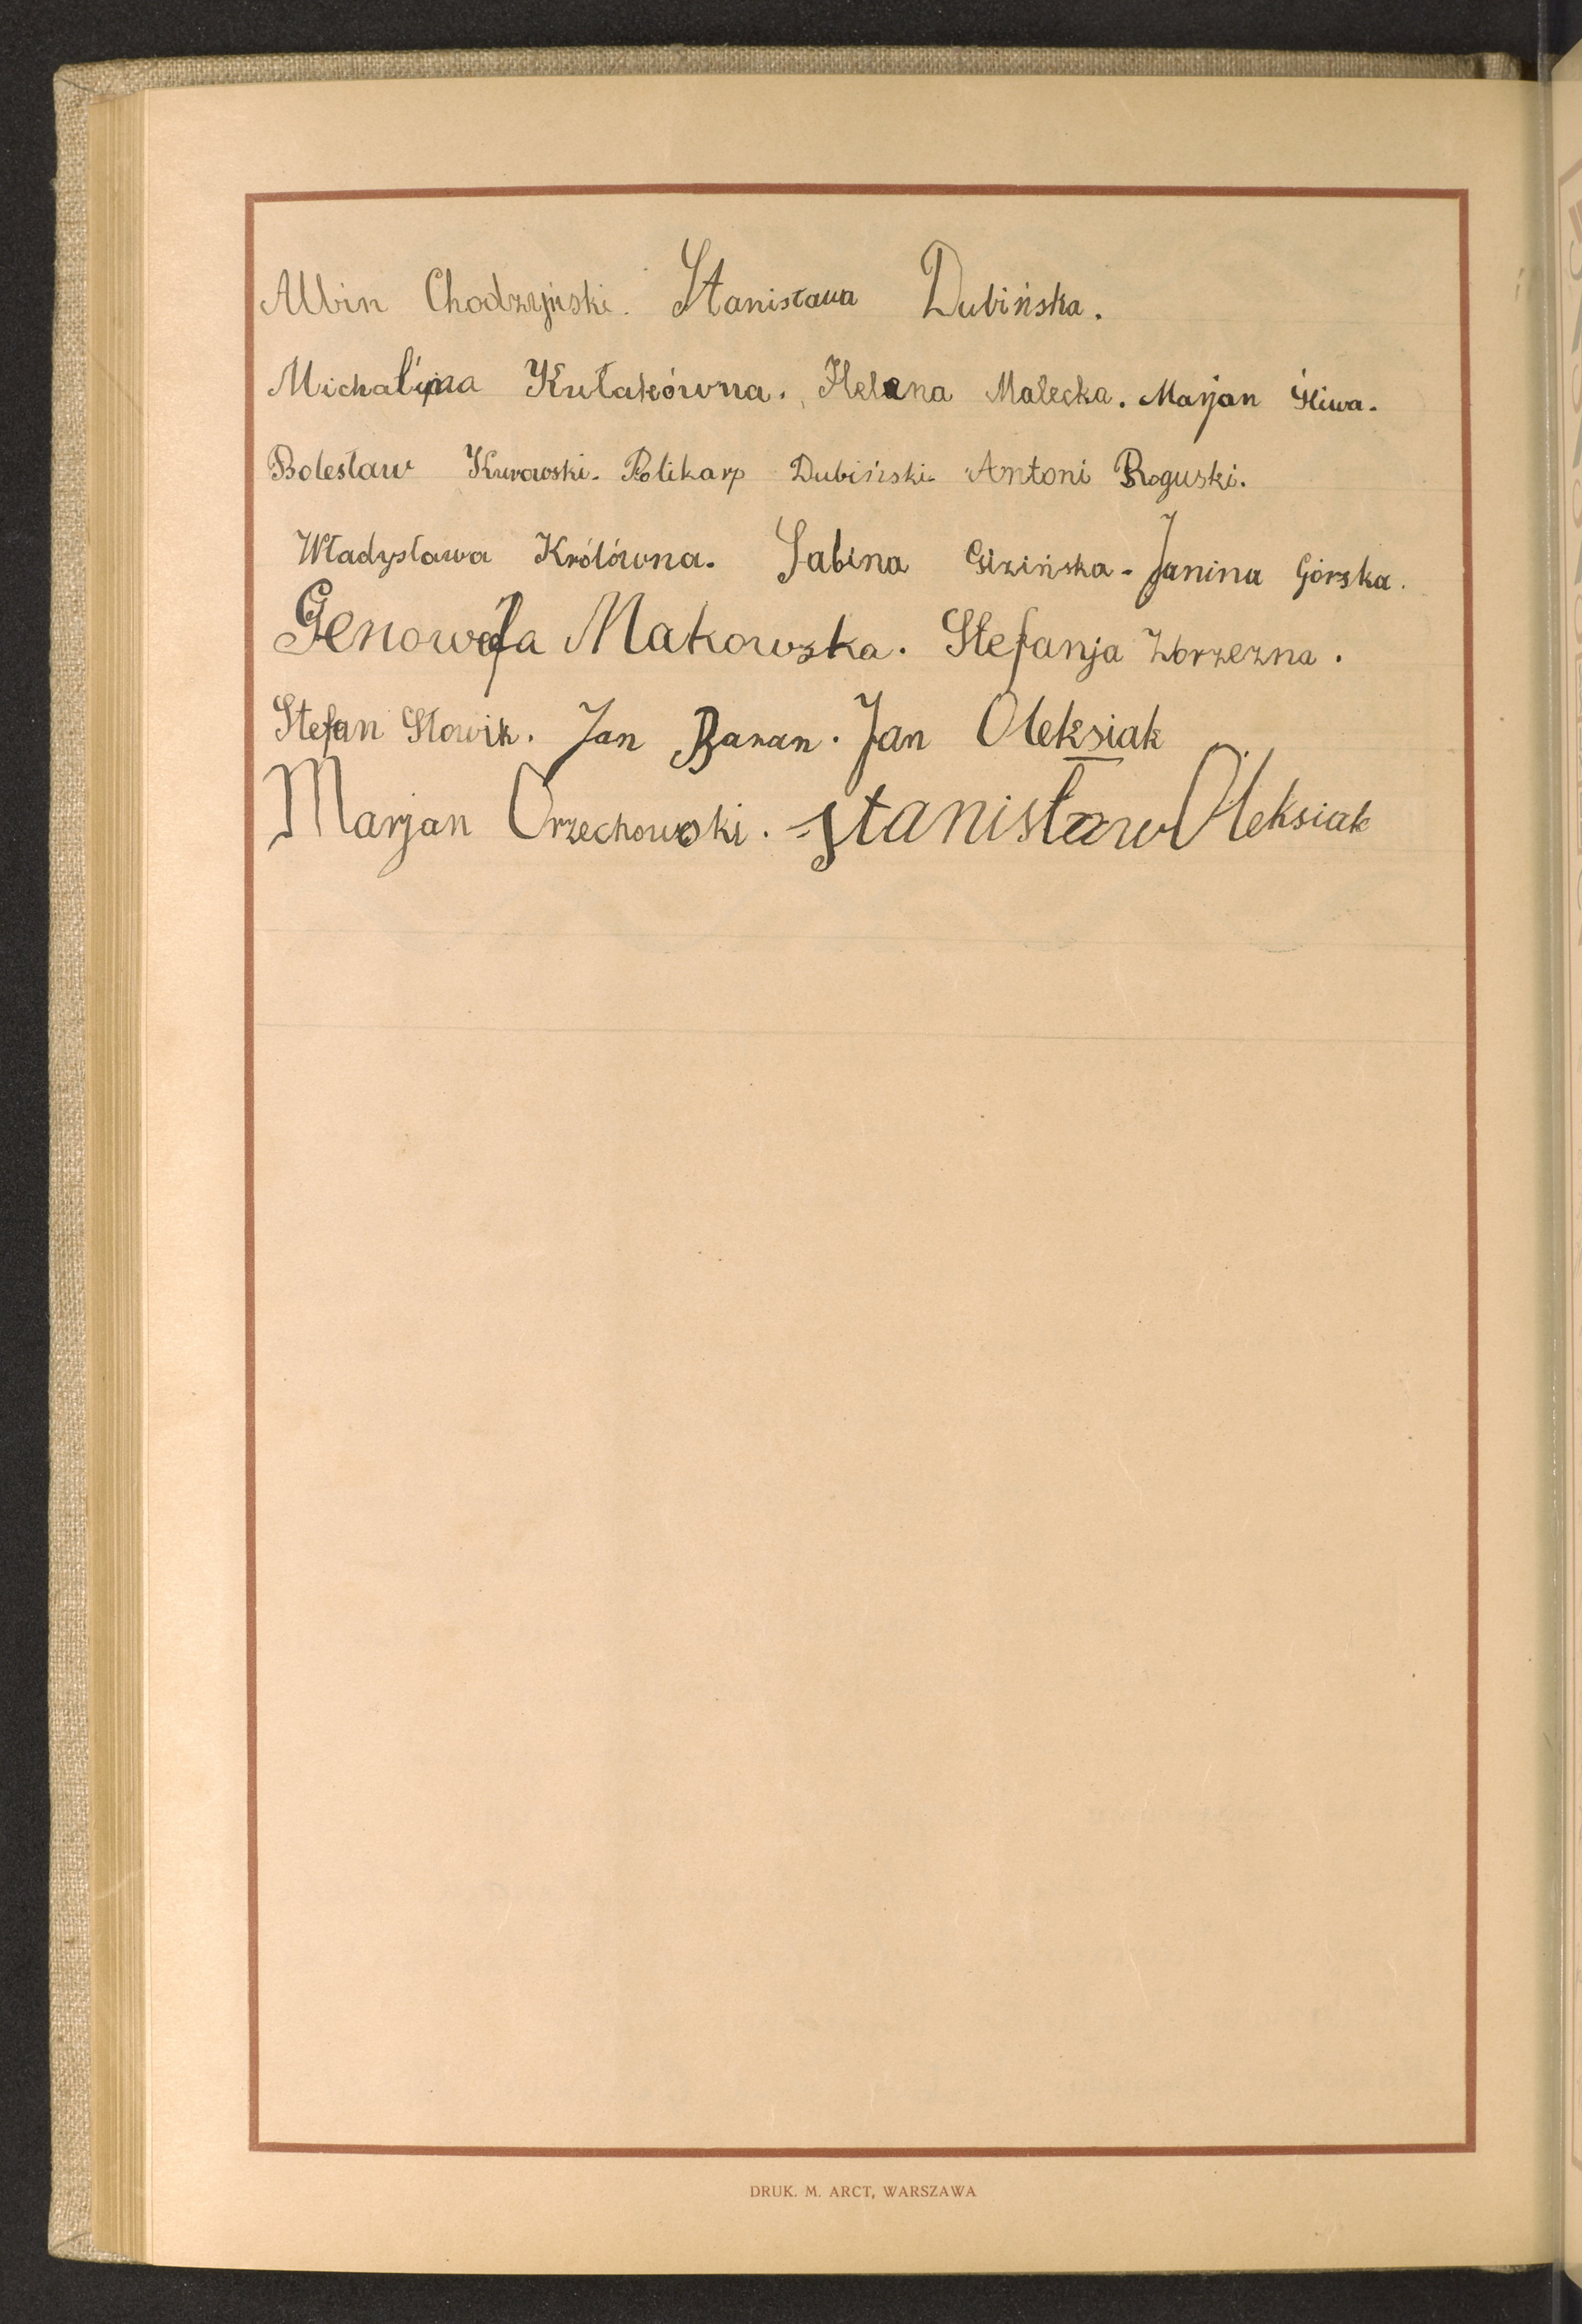 Albin Chodzyński. Stanisława Dubińska.
Michalina Kułakówna. Helena Malecka. Marjan Śliwa.
Bolesław Kurowski. Polikarp Dubiński. Antoni Roguski.
Władysława Królówna. Sabina Gizińska - Janina Górska.
Genowefa Makowska. Stefanja Zbrzezna.
Stefan Słowik. Jan Baran. Jan Oleksiak
Marjan Orzechowski. Stanisław Oleksiak
DRUK. M. ARCT, WARSZAWA